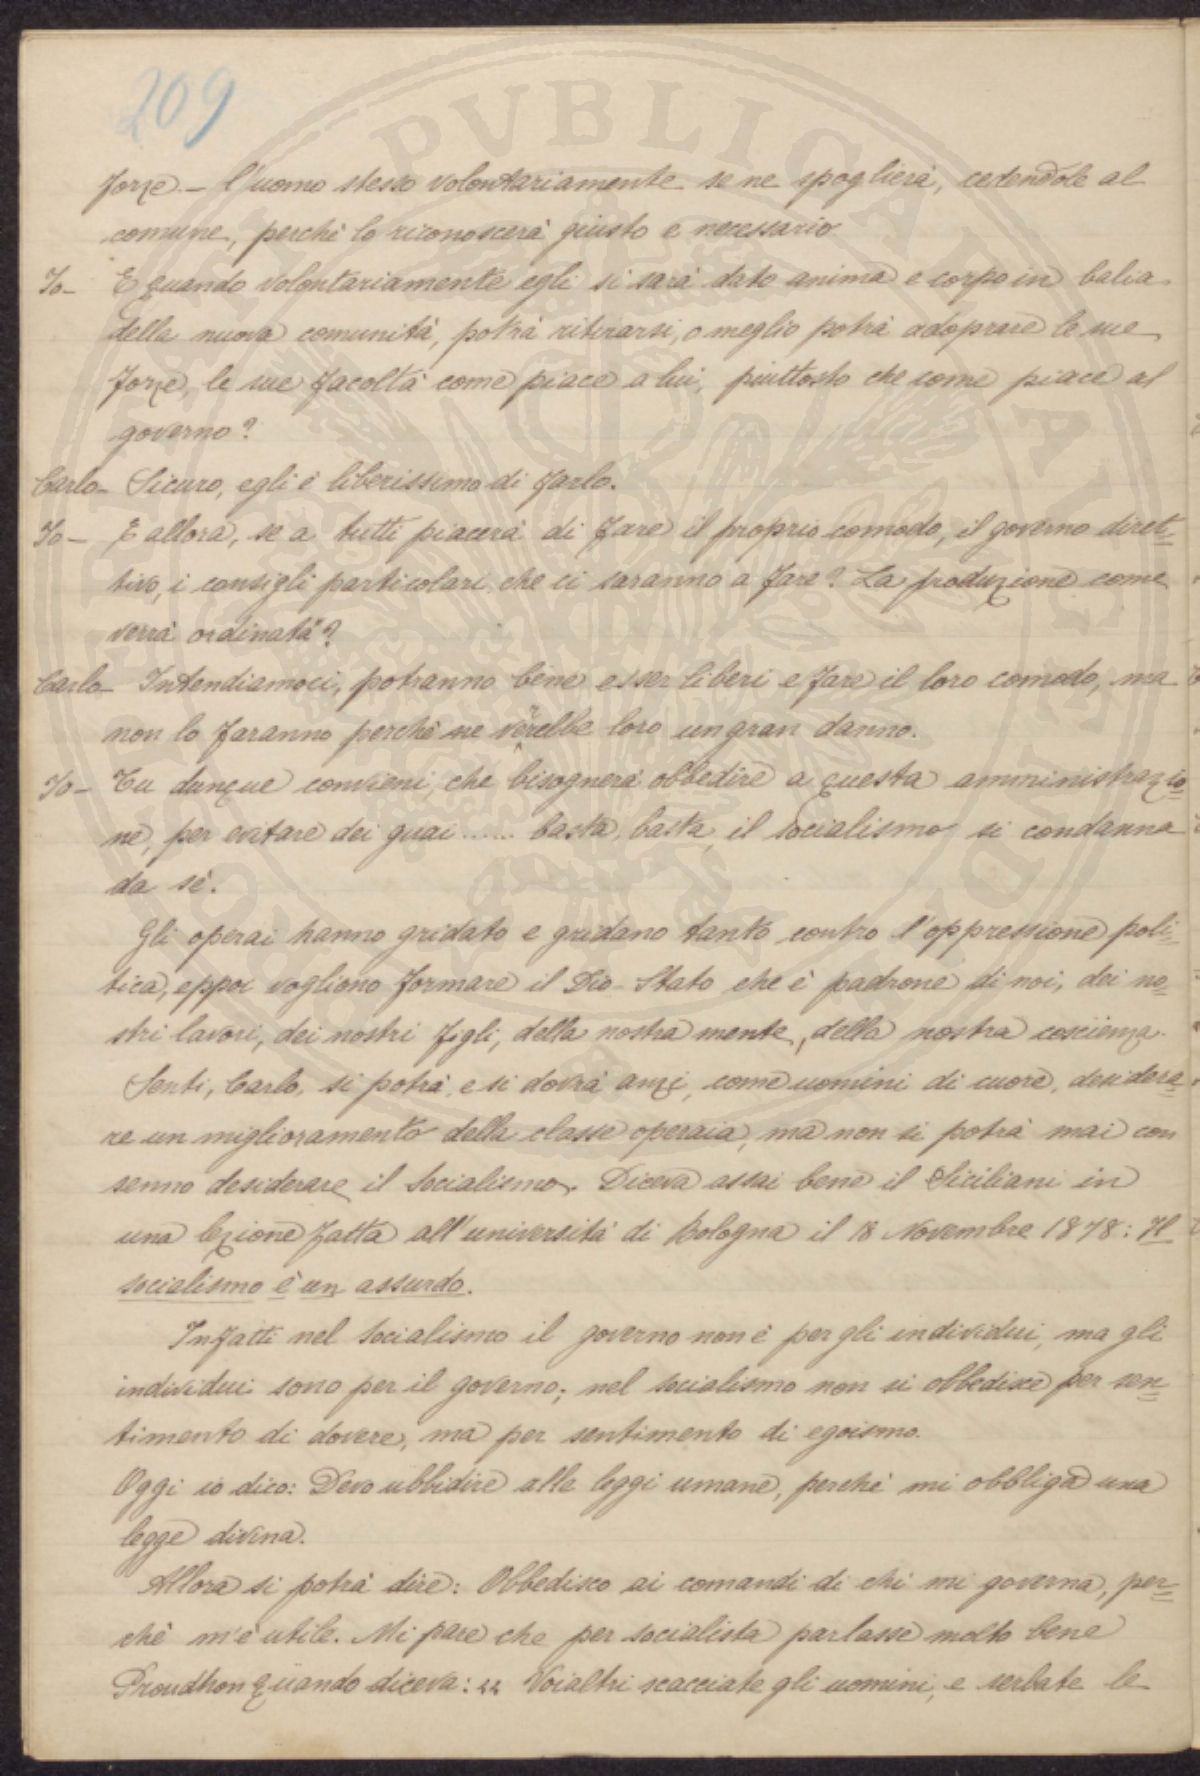 209
forze. – L'uomo stesso volontariamente se ne spoglierà, cedendole al
comune, perchè lo riconoscerà giusto e necessario
Io – E quando volontariamente egli si sarà dato anima e corpo in balia
della nuova comunità, potrà ritirarsi, o meglio potrà adoprare le sue
forze, le sue facoltà come piace a lui, piuttosto che come piace al
governo?
Carlo – Sicuro, egli è liberissimo di farlo.
Io – E allora, se a tutti piacerà di fare il proprio comodo, il governo diret=
tivo, i consigli particolari che ci saranno a fare? La produzione come
verrà ordinata?
Carlo – Intendiamoci, potranno bene esser liberi e fare il loro comodo, ma
non lo faranno perchè ne verrebbe loro un gran danno.
Io – Tu dunque convieni, che bisognerà obbedire a questa amministrazio=
ne, per evitare dei guai...... basta, basta, il socialismo si condanna
da sè.
Gli operai hanno gridato e gridano tanto contro l'oppressione poli=
tica, eppoi vogliono formare il Dio-Stato che è padrone di noi, dei no=
stri lavori, dei nostri figli, della nostra mente, della nostra coscienza.
Senti, Carlo, si potrà, e si dovrà anzi, come uomini di cuore, desidera=
re un miglioramento della classe operaia, ma non si potrà mai con
senno desiderare il Socialismo. Diceva assai bene il Siciliani in
una lezione fatta all'università di Bologna il 18 Novembre 1878: Il
socialismo è un assurdo.
Infatti nel Socialismo il governo non è per gli individui, ma gli
individui sono per il governo; nel socialismo non si obbedisce per sen=
timento di dovere, ma per sentimento di egoismo.
Oggi io dico: Devo ubbidire alle leggi umane, perchè mi obbliga una
legge divina.
Allora si potrà dire: Obbedisco ai comandi di chi mi governa, per=
chè m'è utile. Mi pare che per socialista parlasse molto bene
Proudhon quando diceva: „ Voialtri scacciate gli uomini, e serbate le